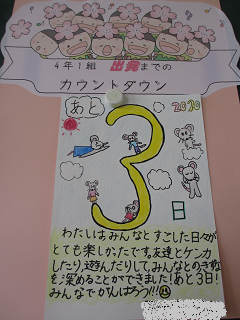 4年1組 出発までの
カウントダウン
あと
2010
3
日
わたしは、みんなとすごした日々が
とても楽しかったです。友達とケンカ
したり、遊んだりして、みんなとのきずな
を深めることができました!あと3日!
みんなでがんばろう!!!